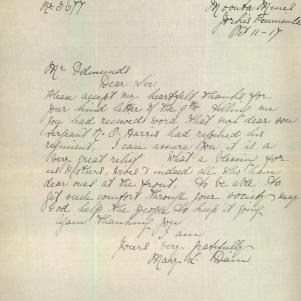 No 5677
Moonta Mines
Yorke's Peninsula
Oct 11-17
Mr Edmunds
Dear Sir
Please accept my heartfelt thanks for
your kind letter of the 9th telling me
you had received word that my dear son
Sergeant N. O. Harris had rejoined his
regiment, I can assure you it is a
very great relief. What a blessing for
us Mothers, Wives & indeed all who have
dear ones at the front. To be able to
get such comfort through your society. may
God help the people to keep it going
Again thanking you
I am
Yours very gratefully
Mary L.